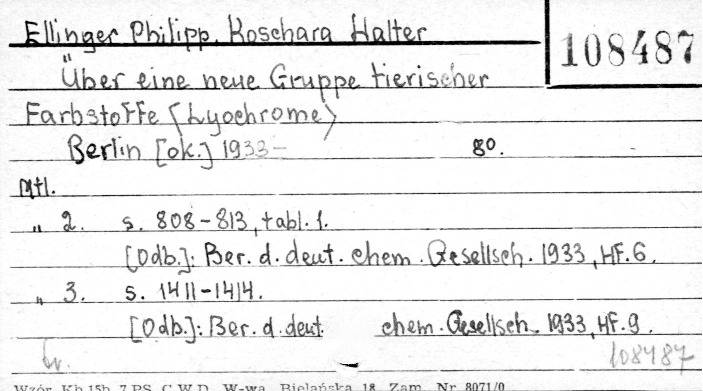 Ellinger Philipp, Koschara Walter
108487
Über eine neue Gruppe tierischer
Farbstoffe (Lyochrome)
Berlin [ok.] 1933- 8o.
Mtl.
" 2. s. 808-813, tabl. 1.
[Odb.]: Ber. d. deut. chem. Gesellsch. 1933, Hf. 6.
" 3. s. 1411-1414.
[Odb.]: Ber. d. deut chem. Gesellsch. 1933, Hf. 9.
108487
Wzór Kb 15b 7 PS. C.W.D. W-wa, Bielańska 18. Zam. Nr 8071/0